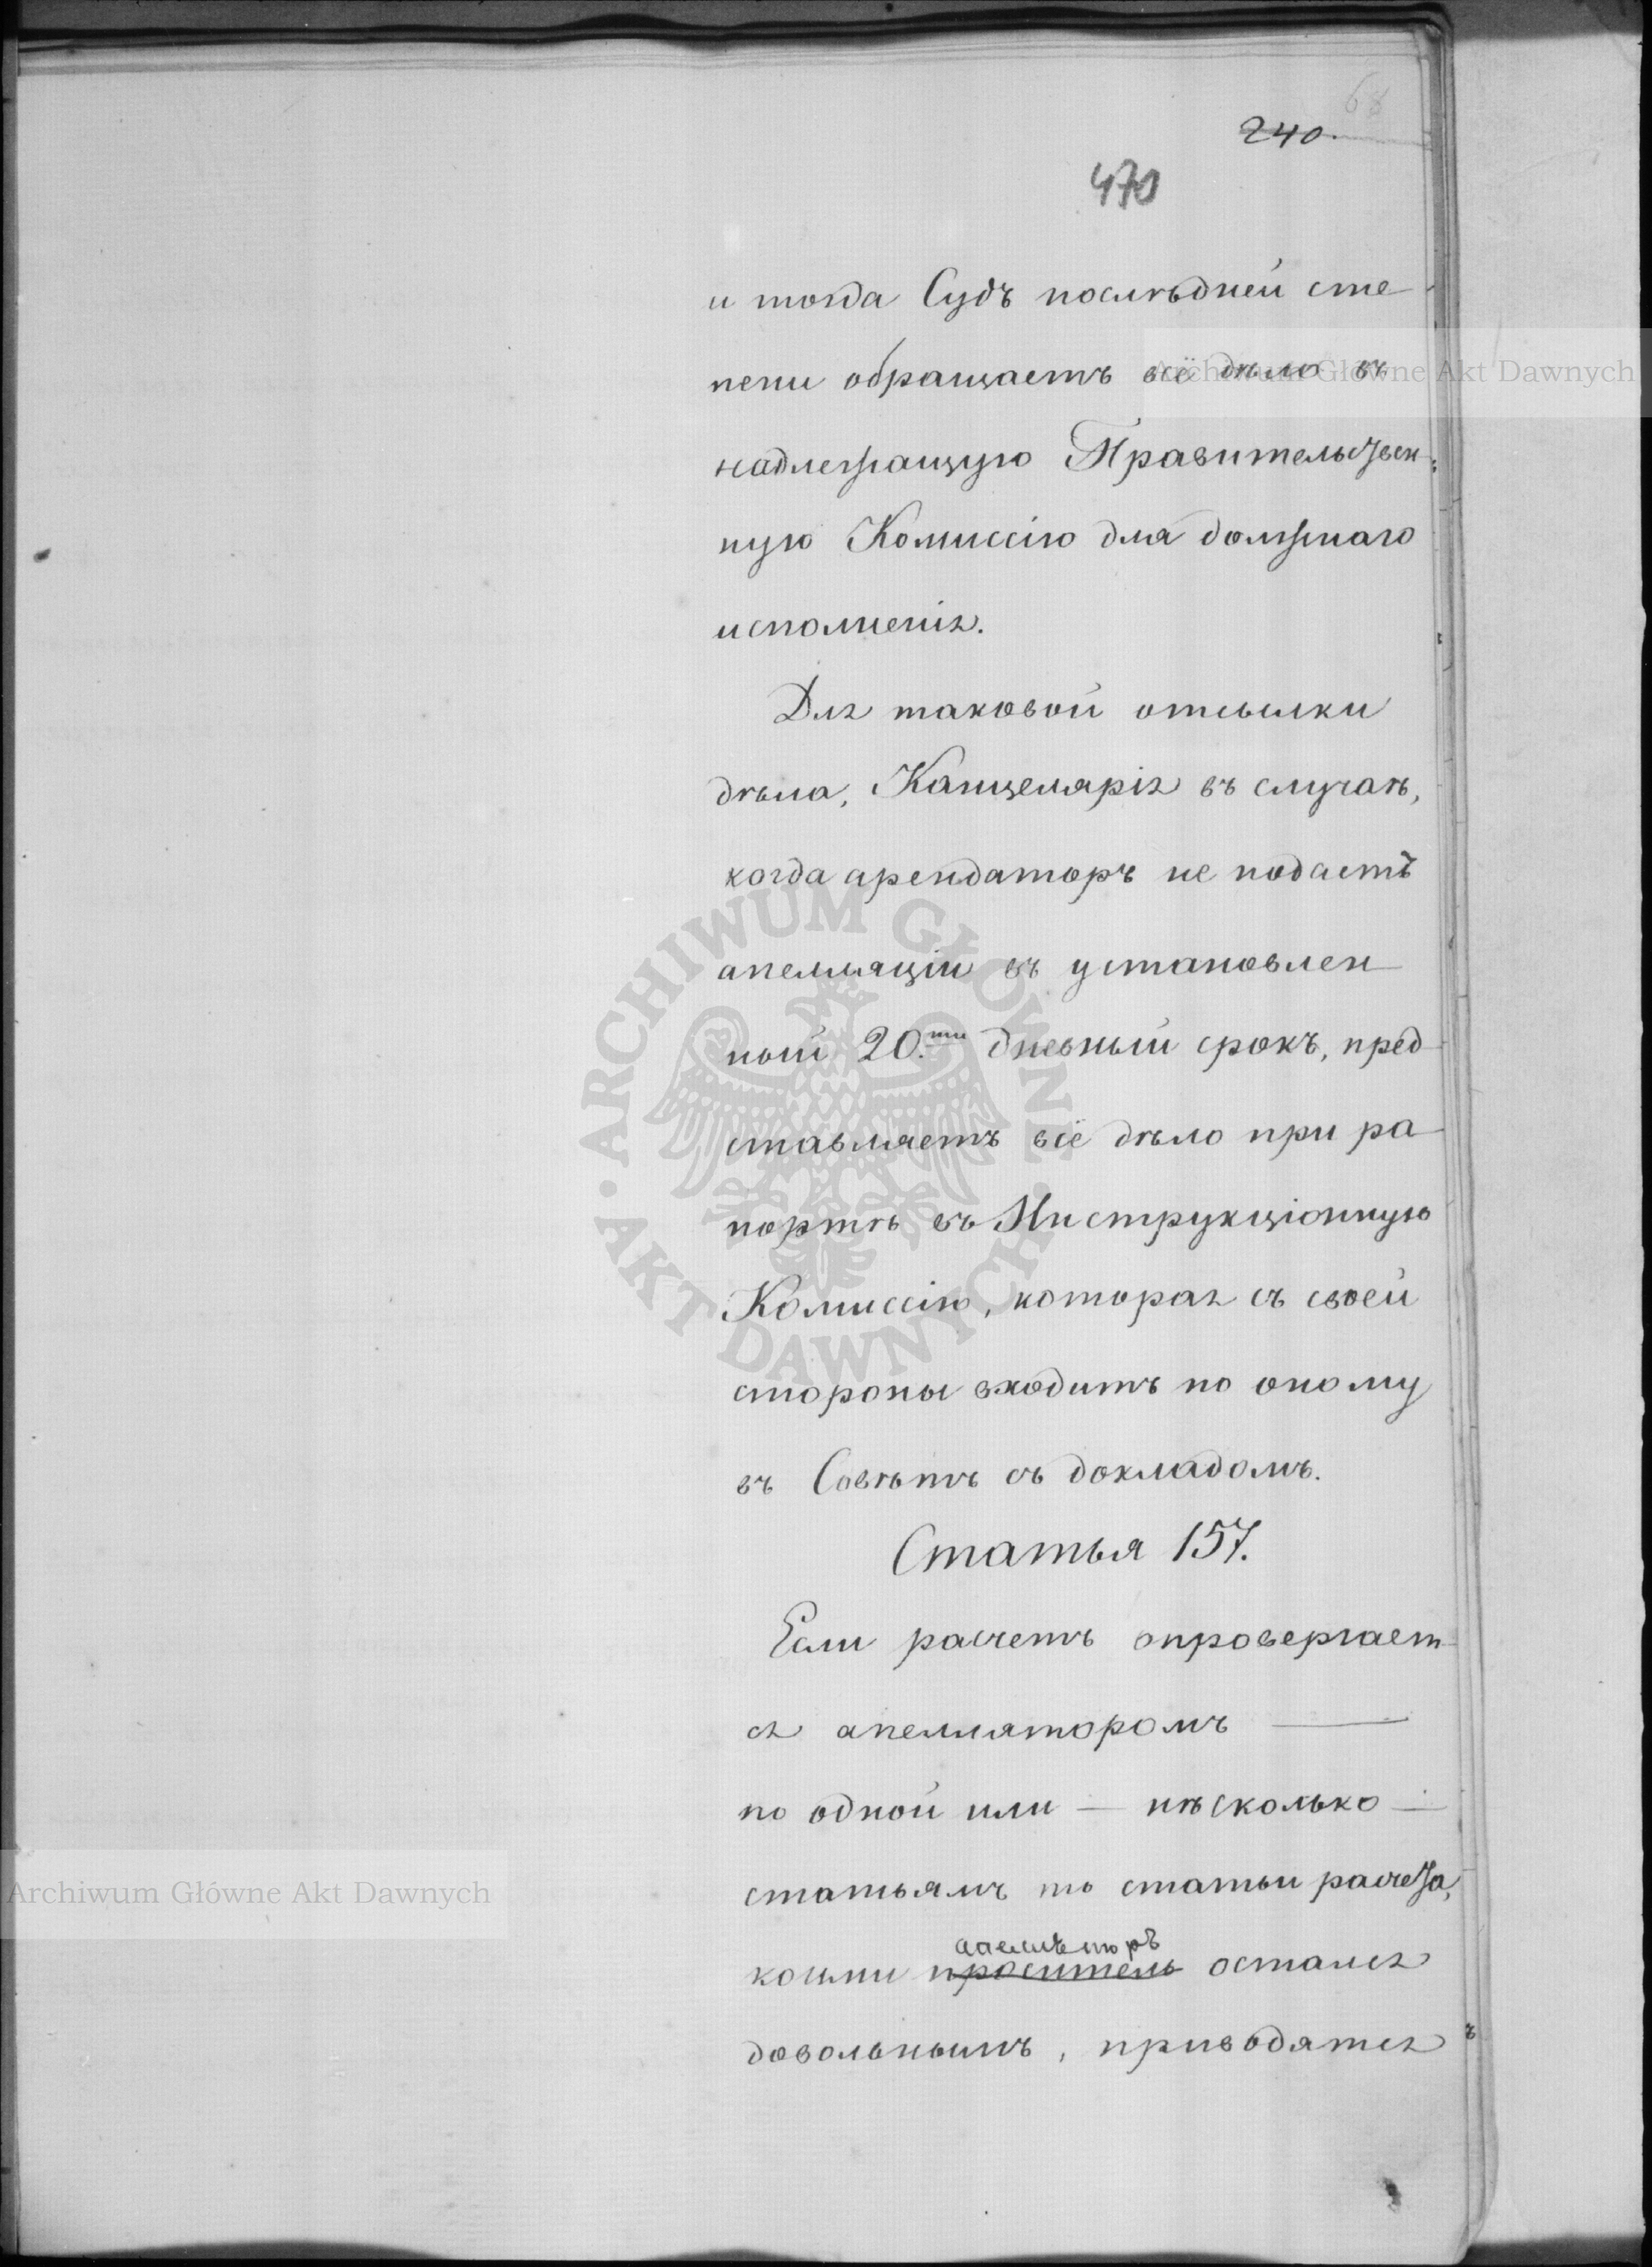 68
240.
470
и тогда Судъ послѣдней сте-
пени обращаетъ всё дѣло въ
надлежащую Правительствен-
ную Комиссію для должнаго
исполненія.
Для таковой отсылки
дѣла, Канцелярія въ случаѣ,
когда арендаторъ не подастъ
апелляціи въ установлен-
ный 20.ти дневный срокъ, пред-
ставляетъ всё дѣло при ра-
портѣ въ Инструкціонную
Комиссію, которая съ своей
стороны входитъ по оному
въ Совѣтъ съ докладомъ.
Статья 157.
Если расчетъ опровергает-
ся апелляторомъ —
по одной или — нѣсколько —
статьямъ то статьи расчета,
апелляторъ
коими проситель остался
довольнымъ, приводятся
Archiwum Główne Akt Dawnych
ARCHIWUM GŁÓWNE · AKT DAWNYCH ·
Archiwum Główne Akt Dawnych